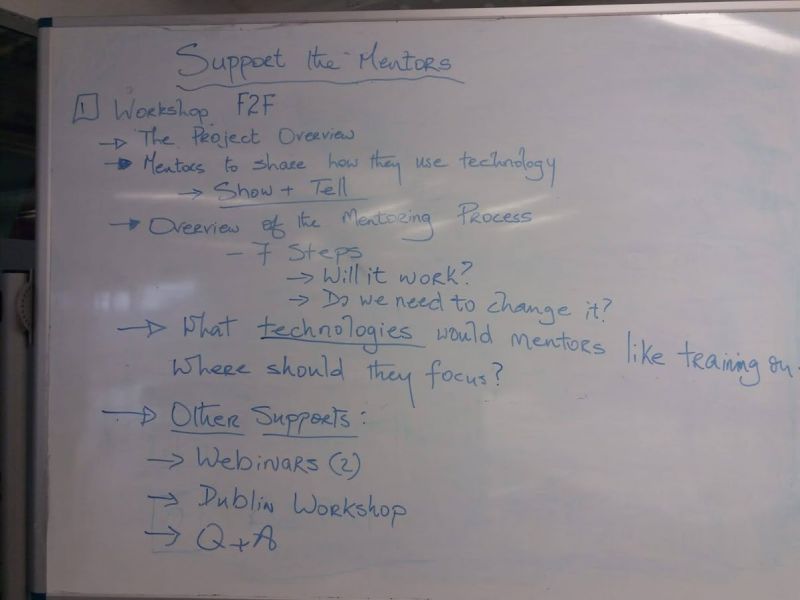 Support the Mentors
1 Workshop F2F
→ The Project Overview
→ Mentors to share how they use technology
→ Show + Tell
→ Overview of the Mentoring Process
- 7 Steps
→ Will it work?
→ Do we need to change it?
→ What technologies would mentors like training on.
Where should they focus?
→ Other Supports:
→ Webinars (2)
→ Dublin Workshop
→ Q + A